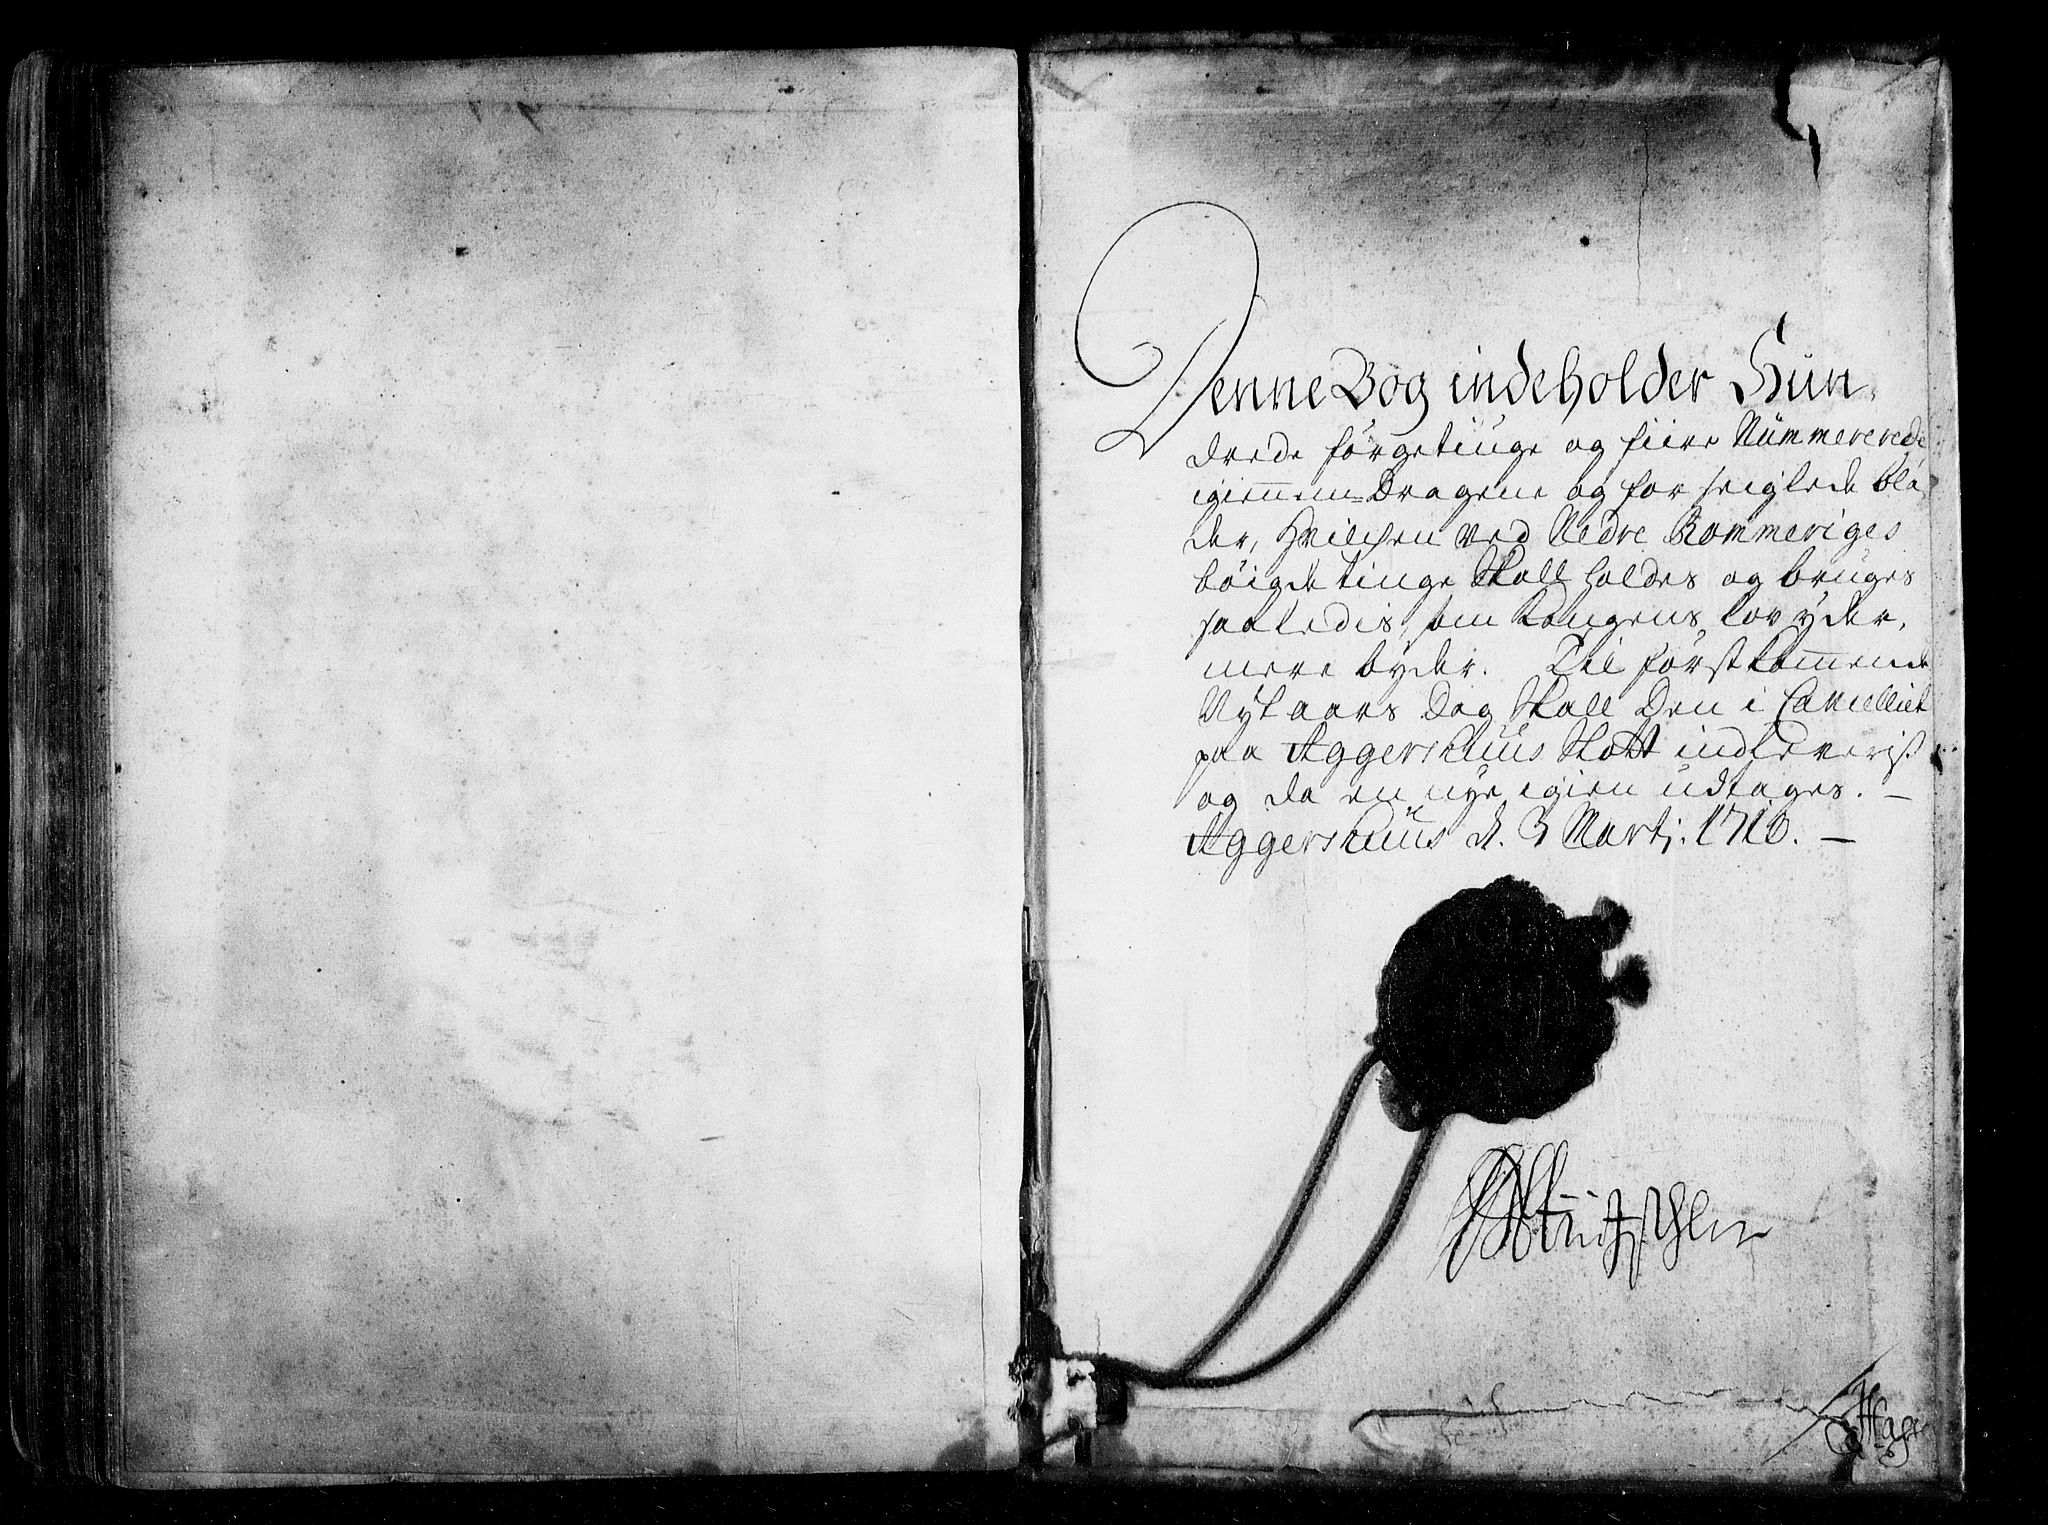 Denne Bog indeholder Hun-
drede förgetiuge og fiire Nümmererede
igiemmen-Dragene og for seiglede bla-
der, Hvilchen ved Nedre Rommeriges
böigdetinge Skall holdes og bruges
saaledis, som Kongens lov yder-
mere byder. Til först kommende
Nyt aars Dag Skall Den i Cancelliet
paa Aggershuus Slott indleveris
og da en nye igien udtages. —
Aggershuus d. 3 Martj. 1710. —